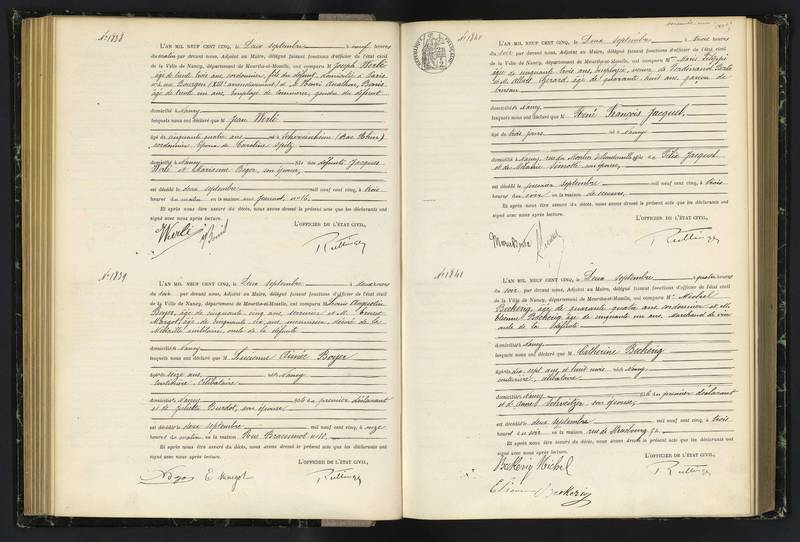 N° 1838
L'AN MIL NEUF CENT CINQ, le Deux septembre à neuf heures
du matin par devant nous, Adjoint au Maire, délégué faisant fonctions d'officier de l'état civil
de la Ville de Nancy, département de Meurthe-et-Moselle, ont comparu M. Joseph Werlé
âgé de trente trois ans cordonnier, fils du défunt, domicilié à Paris
âgé de trente ans, employé de commerce, gendre du défunt
domicilié à Nancy
lesquels nous ont déclaré que M. Jean Werlé
âgé de cinquante quatre ans né à
cordonnier, époux de Caroline Spitz
domicilié à Nancy fils des défunts Jacques
Werlé et Marianne son épouse,
est décédé le deux septembre mil neuf cent cinq, à trois
heures du matin en la maison n° 16.
Et après nous être assuré du décès, nous avons dressé le présent acte que les déclarants ont
signé avec nous après lecture.
L'OFFICIER DE L'ÉTAT CIVIL,
Werlé
N° 1839
L'AN MIL NEUF CENT CINQ, le Deux septembre à deux heures
du soir par devant nous, Adjoint au Maire, délégué faisant fonctions d'officier de l'état civil
de la Ville de Nancy, département de Meurthe-et-Moselle, ont comparu M. Louis Augustin
Boyer, âgé de cinquante cinq ans serrurier et M. Ernest
Margot âgé de cinquante six ans menuisier, décoré de la
Médaille militaire, oncle de la défunte
domiciliés à Nancy
lesquels nous ont déclaré que M Lucienne Aimée Boyer
âgée de seize ans, née à Nancy
couturière célibataire
domiciliée à Nancy fille du premier déclarant
et de Juliette Burdot, son épouse
est décédée le deux septembre mil neuf cent cinq, à onze
heures du matin en la maison Rue Braconnot n° 10.
Et après nous être assuré du décès, nous avons dressé le présent acte que les déclarants ont
signé avec nous après lecture.
L'OFFICIER DE L'ÉTAT CIVIL,
E Margot
N° 1840
L'AN MIL NEUF CENT CINQ, le Deux septembre à trois heures
du soir par devant nous, Adjoint au Maire, délégué faisant fonctions d'officier de l'état civil
de la Ville de Nancy, département de Meurthe-et-Moselle, ont comparu Mme Marie
âgée de cinquante trois ans, employée, veuve de Ferdinand
et M. Albert Gérard, âgé de quarante huit ans garçon de
bureau
domiciliés à Nancy
lesquels nous ont déclaré que M René François Jacquet
âgé de trois jours né à Nancy
domicilié à Nancy, rue du fils de Félix Jacquet
et de son épouse,
est décédé le premier septembre mil neuf cent cinq, à trois
heures du soir en la maison de secours,
Et après nous être assuré du décès, nous avons dressé le présent acte que les déclarants ont
signé avec nous après lecture.
L'OFFICIER DE L'ÉTAT CIVIL,
N° 1841
L'AN MIL NEUF CENT CINQ, le Deux septembre à quatre heures
du soir par devant nous, Adjoint au Maire, délégué faisant fonctions d'officier de l'état civil
de la Ville de Nancy, département de Meurthe-et-Moselle, ont comparu M. Michel
Beckerig âgé de quarante quatre ans cordonnier et M.
Etienne Beckerig âgé de cinquante un ans, marchand de vin
oncle de la défunte
domiciliés à Nancy
lesquels nous ont déclaré que M Catherine Beckerig
âgée de dix sept ans et huit mois née à Nancy
couturière, célibataire
domiciliée à Nancy fille du premier déclarant
et de Anne Schweitzer son épouse,
est décédée le deux septembre mil neuf cent cinq, à trois
heures du soir en la maison rue de Strasbourg 92.
Et après nous être assuré du décès, nous avons dressé le présent acte que les déclarants ont
signé avec nous après lecture.
L'OFFICIER DE L'ÉTAT CIVIL,
Beckerig Michel
Etienne Beckerig